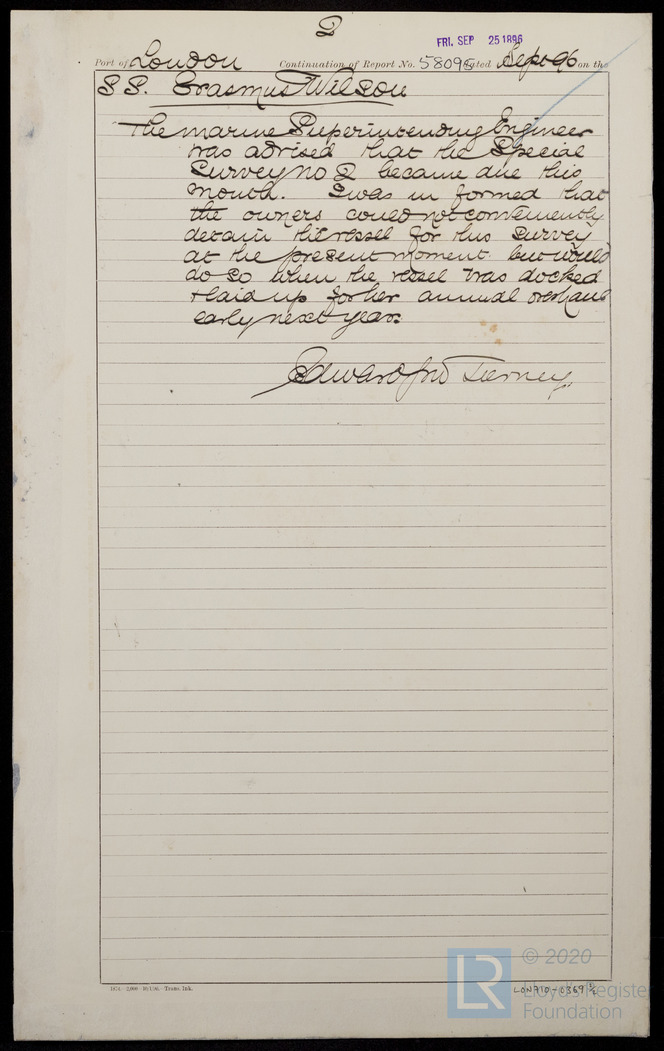 2
FRI. SEP 25 1896
Port of London Continuation of Report No. 58094 dated Sept 96 on the
S.S. Erasmus Wilson
The marine Superintending Engineer
was advised that the Special
Survey No 2 became due this
month. I was informed that
the owners could not conveniently
detain the vessel for this Survey
at the present moment but would
do so when the vessel was docked
& laid up for her annual overhaul
early next year.
Edward Tierney
Trans. Ink.
LON710-0369
© 2020
LR Lloyd's Register
Foundation